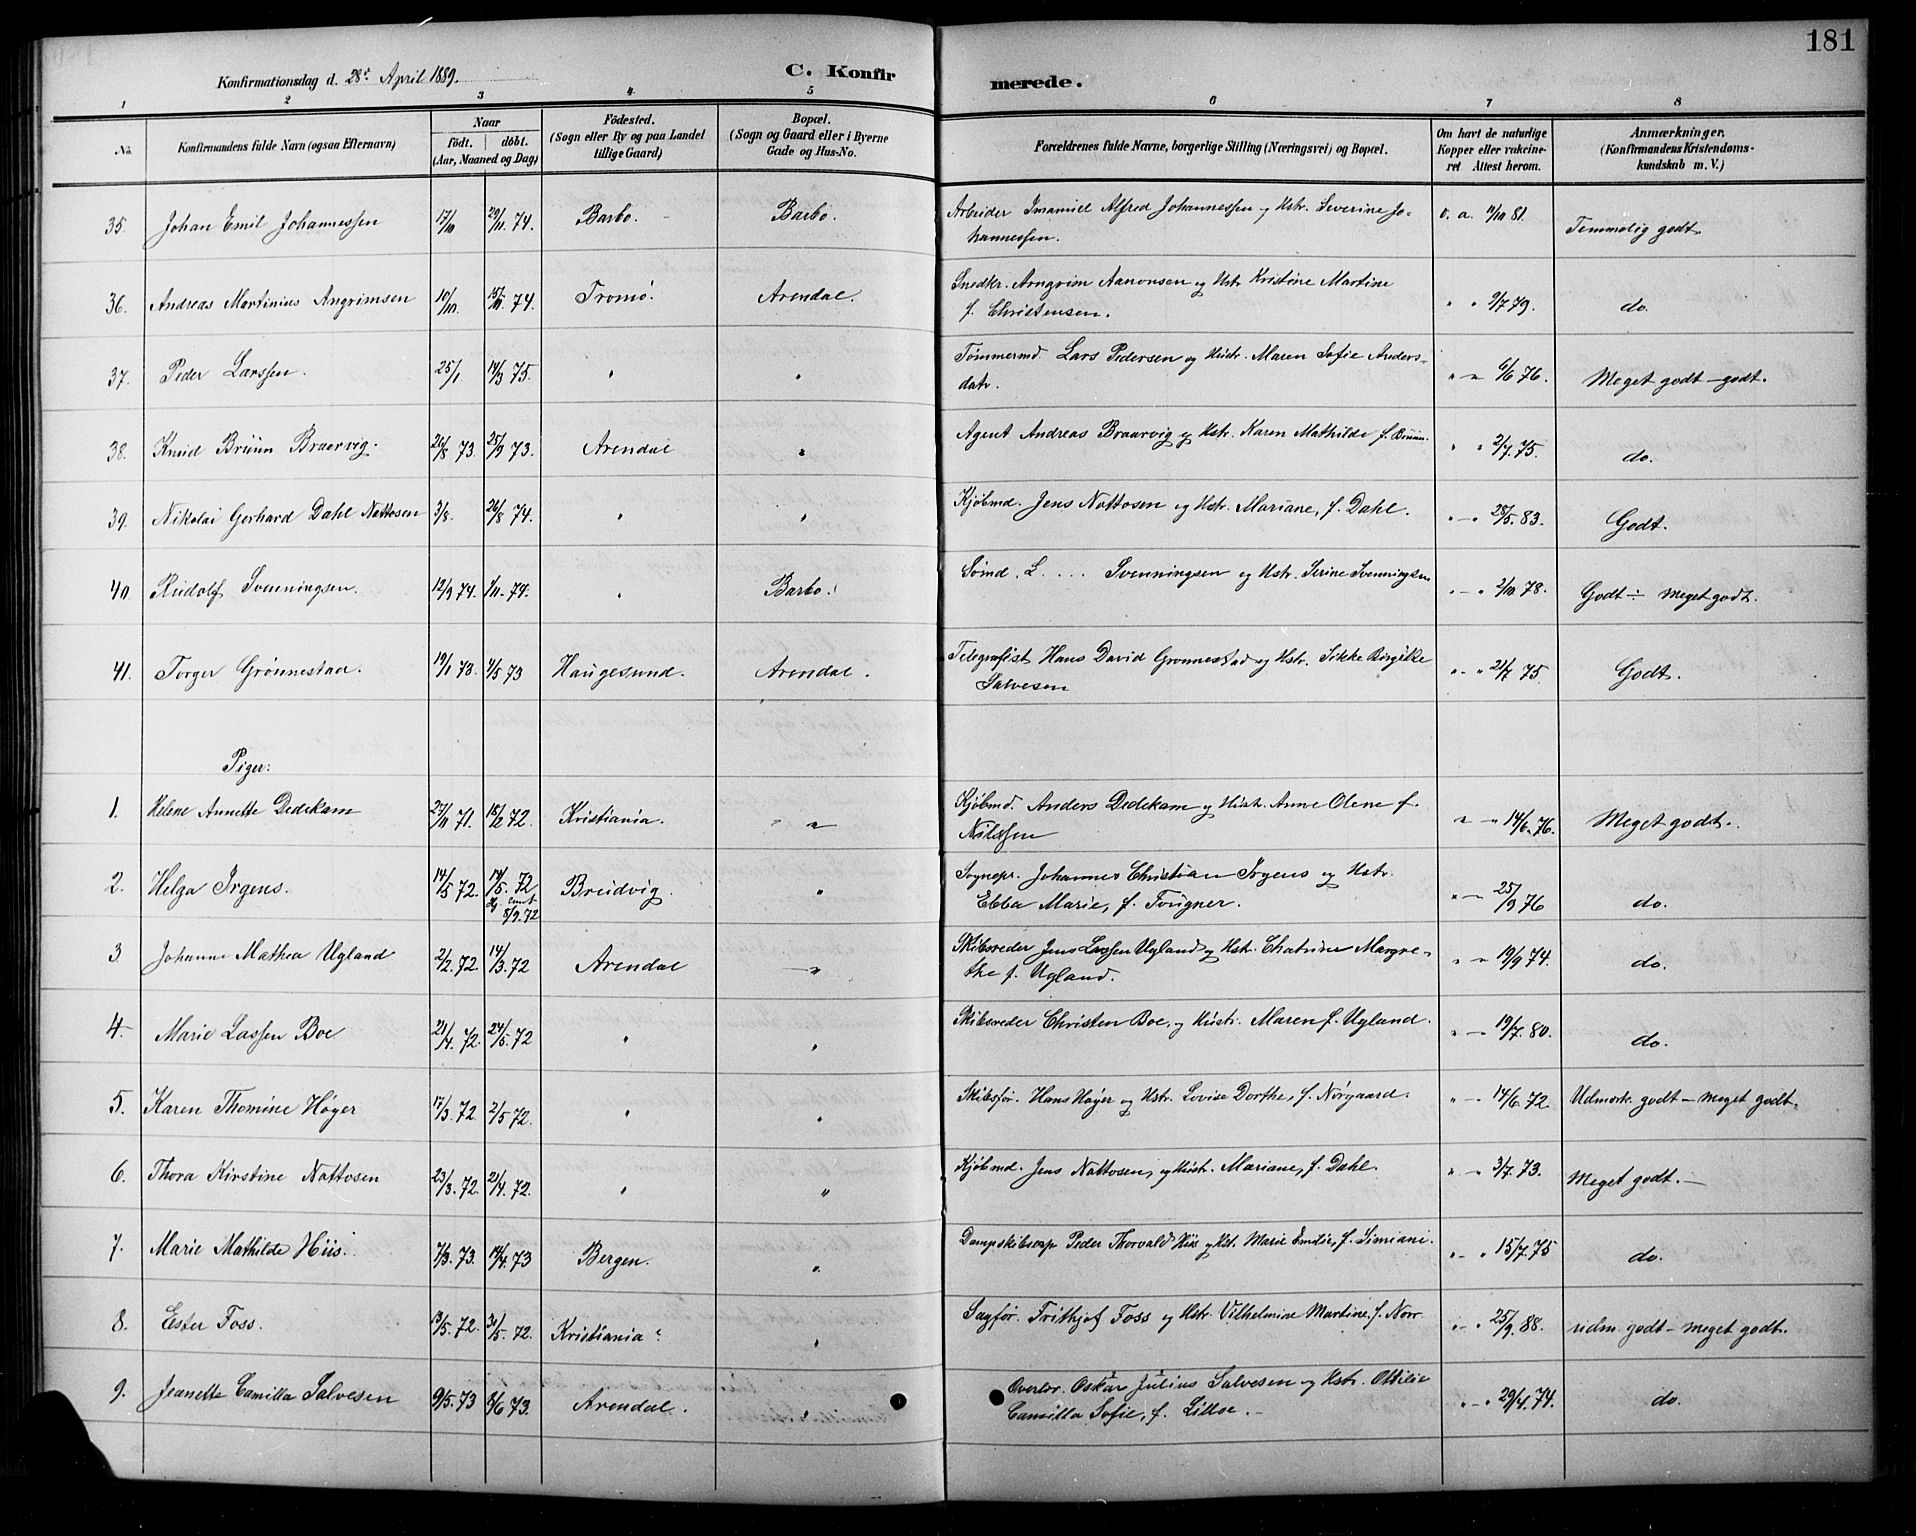 181
Konfirmationsdag d. 28de April 1889.
C. Konfirmerede.
1 2 3 4 5 6 7 8
No. Konfirmandens fulde Navn (ogsaa Efternavn) Naar födt. döbt. (Aar, Maaned og Dag) Födested. (Sogn eller By og paa Landet tillige Gaard) Bopæl. (Sogn og Gaard eller i Byerne Gade og Hus-No. Forældrenes fulde Navne, borgerlige Stilling (Næringsvei) og Bopæl. Om havt de naturlige Kopper eller vakcineret Attest herom. Anmærkninger. (Konfirmandens Kristendomskundskab m. V.)
35. Johan Emil Johannessen 17/10 29/11. 74. Barbo. Barbo. Arbeider Imanuel Alfred Johannessen og Hstr. Severine Johannessen. v. a. 11/10 81. Temmelig godt.
36. Andreas Martinius Angrimsen 10/10. 15/11. 74. Tromø. Arendal. Snedker. Arngrim Aanonsen og Hstr Kristine Martine f. Christensen. " " 9/7 79. do.
37. Peder Larssen. 25/1. 14/3 75. " " Tømmermd. Lars Pedersen og Hustr. Maren Sofie Andersdatr. " " 6/6 76. Meget godt - godt.
38. Knud Brüün Braarvig. 26/8 73. 25/9 73. Arendal " Agent Andreas Braarvig og Hstr. Karen Mathilde f. Brüün. " " 2/7. 75. do.
39. Nikolai Gerhard Dahl Nattosen 3/8. 26/8 74. " " Kjøbmd. Jens Nattosen og Hstr. Mariane, f. Dahl. " - " 28/5. 83. Godt.
40. Rudolf Svenningsen. 12/9 74. 1/11. 74. " Barbo. Sømd. L.... Svenningsen og Hstr. Serine Svenningsen " - " 2/10. 78. Godt ÷ Meget godt.
41. Torger Grønnestad. 19/1 73. 4/5 73 Haugesund. Arendal. Telegrafist Hans David Grønnestad og Hstr. Sikke Birgitte Salvesen " - " 21/7 75. Godt.
Piger:
1. Helene Annette Dedekam 27/11 71. 18/2 72. Kristiania. " Kjøbmd. Anders Dedekam og Hustr. Anne Olene f. Nilssen " " 14/6. 76. Meget godt.
2. Helga Irgens. 14/5 72. 14/5. 72 8/9. 72 Breidvig. " Sognepr. Johannes Christian Irgens og Hstr. Ebba Marie, f. Fougner. " - 25/9 76 do.
3 Johanne Mathea Ugland 2/2. 72. 14/3. 72 Arendal " Skibsreder Jens Lassen Ugland og Hstr. Chatrine Margrethe f. Ugland. " - " 19/9 74. do.
4. Marie Lassen Boe 21/4. 72. 24/5. 72 " " Skibsreder Christen Boe. og Hustr. Maren f. Ugland. " - " 19/7. 80. do.
5. Karen Thomine Høyer 17/3. 72. 2/5 72. " " Skibsfør. Hans Høyer og Hstr. Lovise Dorthe, f. Nørgaard. " - " 14/6. 72. Udmerk. godt - meget godt.
6. Thora Kirstine Nattosen 23/3. 72. 21/4. 72. " " Kjøbmd. Jens Nattosen, og Hustr. Mariane, f. Dahl. " - " 3/7. 73. Meget godt. -
7. Marie Mathilde Hiis. 7/3. 73. 14/4. 73 Bergen. " Dampskibsexp Peder Thorvald Hiis og Hstr. Marie Emilie, f. Simiani. " - " 15/7. 75 do.
8. Ester Foss. 13/5. 72. 30/5. 72. Kristiania " Sagfør. Frithjof Foss og Hstr. Vilhelmine Martine. f. Norr " - " 25/9. 88. udm. godt - meget godt.
9. Jeanette Camilla Salvesen 9/5. 73 8/6 73. Arendal. " Overlør. Oskar Julius Salvesen og Hstr. Ottilie Camilla Sofie, f. Lilloe. - " - " 29/4. 74. do.